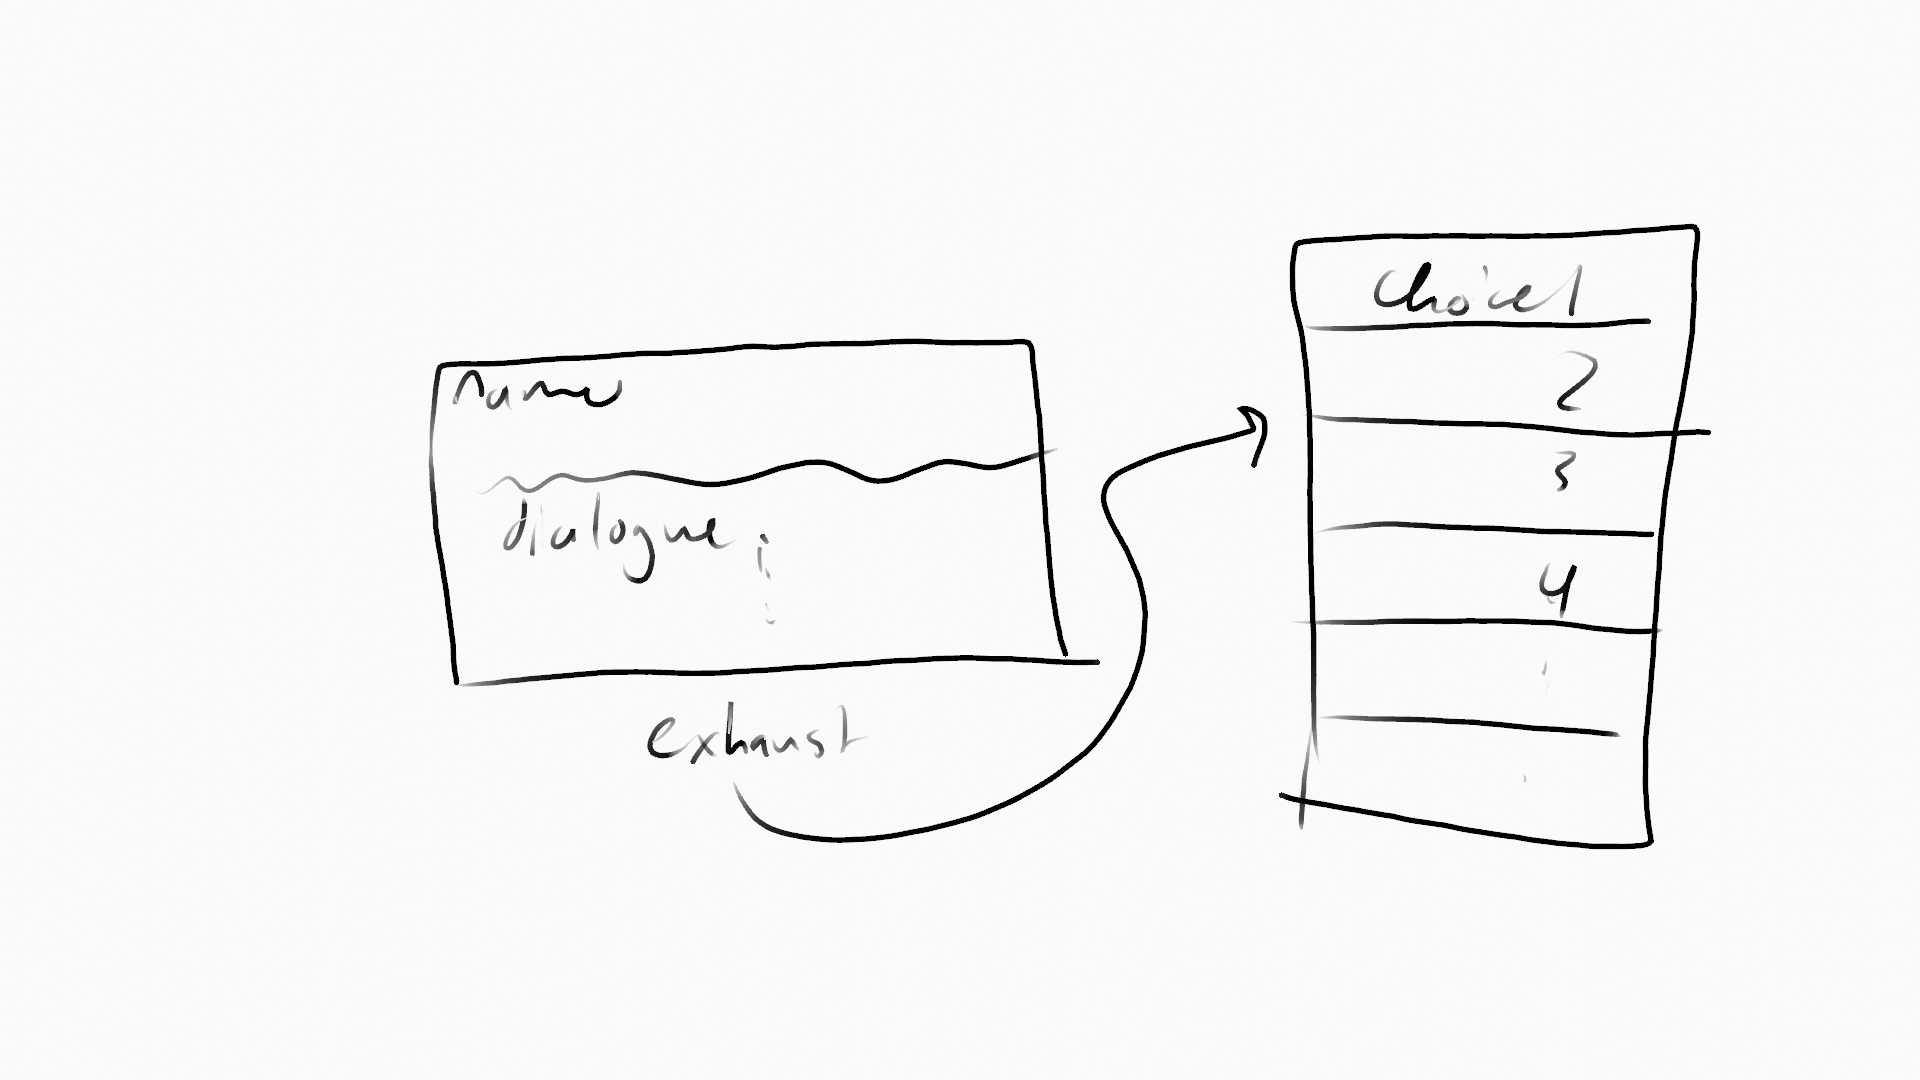 name
dialogue
exhaust
choice 1
2
3
4